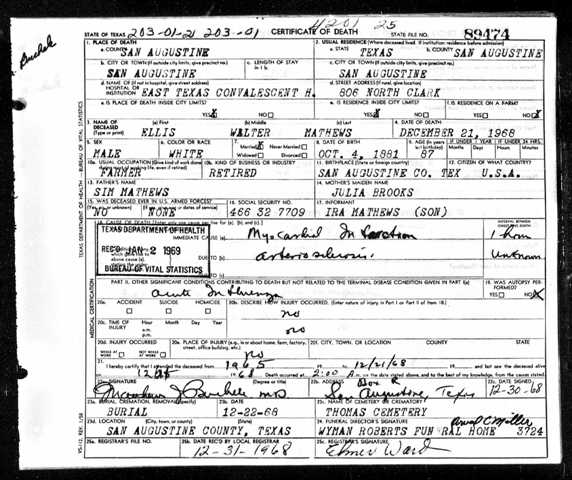 203-01-21 203-01 4201 25
STATE OF TEXAS CERTIFICATE OF DEATH STATE FILE NO. 89474
1. PLACE OF DEATH 2. USUAL RESIDENCE (Where deceased lived. If institution: residence before admission)
a. COUNTY SAN AUGUSTINE a. STATE TEXAS b. COUNTY SAN AUGUSTINE
b. CITY OR TOWN (If outside city limits, give precinct no.) c. LENGTH OF STAY in 1 b. c. CITY OR TOWN (If outside city limits, give precinct no.)
SAN AUGUSTINE SAN AUGUSTINE
d. NAME OF (If not in hospital, give street address) d. STREET ADDRESS
HOSPITAL OR INSTITUTION EAST TEXAS CONVALESCENT H. 806 NORTH CLARK
e. IS PLACE OF DEATH INSIDE CITY LIMITS? e. IS RESIDENCE INSIDE CITY LIMITS? f. IS RESIDENCE ON A FARM?
YES NO YES NO YES NO
3. NAME OF DECEASED (Type or print) (a) First (b) Middle (c) Last 4. DATE OF DEATH
ELLIS WALTER MATHEWS DECEMBER 21, 1968
5. SEX 6. COLOR OR RACE 7. Married Never Married 8. DATE OF BIRTH 9. AGE IF UNDER 1 YEAR IF UNDER 24 HRS.
MALE WHITE Widowed Divorced OCT. 4, 1881 87
10a. USUAL OCCUPATION (Give kind of work done 10b. KIND OF BUSINESS OR INDUSTRY 11. BIRTHPLACE (State or foreign country) 12. CITIZEN OF WHAT COUNTRY?
FARMER RETIRED SAN AUGUSTINE CO. TEX U.S.A.
13. FATHER'S NAME 14. MOTHER'S MAIDEN NAME
SIM MATHEWS JULIA BROOKS
15. WAS DECEASED EVER IN U.S. ARMED FORCES? 16. SOCIAL SECURITY NO. 17. INFORMANT
NO NONE 466 32 7709 IRA MATHEWS (SON)
18. CAUSE OF DEATH
TEXAS DEPARTMENT OF HEALTH
IMMEDIATE CAUSE (a) Myocardial Infarction 1 hour
REC'D JAN 2 1969
DUE TO (b) arteriosclerosis. Unknown
BUREAU OF VITAL STATISTICS
DUE TO (c)
PART II. OTHER SIGNIFICANT CONDITIONS CONTRIBUTING TO DEATH BUT NOT RELATED TO THE TERMINAL DISEASE CONDITION GIVEN IN PART I(a) 19. WAS AUTOPSY PERFORMED?
acute Influenza YES NO
20a. ACCIDENT SUICIDE HOMICIDE 20b. DESCRIBE HOW INJURY OCCURRED. (Enter nature of injury in Part I or Part II of item 18.)
no
20c. TIME OF INJURY Hour Month Day Year
no
20d. INJURY OCCURRED 20e. PLACE OF INJURY (e.g., in or about home, farm, factory, street, office building, etc.) 20f. CITY, TOWN, OR LOCATION COUNTY STATE
WHILE AT WORK NOT WHILE AT WORK no
21. I hereby certify that I attended the deceased from 1965 to 12/21/68
Death occurred at 2:00 A m. on the date stated above, and to the best of my knowledge, from the causes stated.
22a. SIGNATURE (Degree or title) 22b. ADDRESS Box R 22c. DATE SIGNED
MD San Augustine, Texas 12-30-68
23a. BURIAL, CREMATION, REMOVAL (Specify) 23b. DATE 23c. NAME OF CEMETERY OR CREMATORY
BURIAL 12-22-68 THOMAS CEMETERY
23d. LOCATION (City, town, or county) (State) 24. FUNERAL DIRECTOR'S SIGNATURE
SAN AUGUSTINE COUNTY, TEXAS WYMAN ROBERTS FUNERAL HOME 3724
25a. REGISTRAR'S FILE NO. 25b. DATE REC'D BY LOCAL REGISTRAR 25c. REGISTRAR'S SIGNATURE
12-31-1968 Elmer Ward
TEXAS DEPARTMENT OF HEALTH — BUREAU OF VITAL STATISTICS
MEDICAL CERTIFICATION